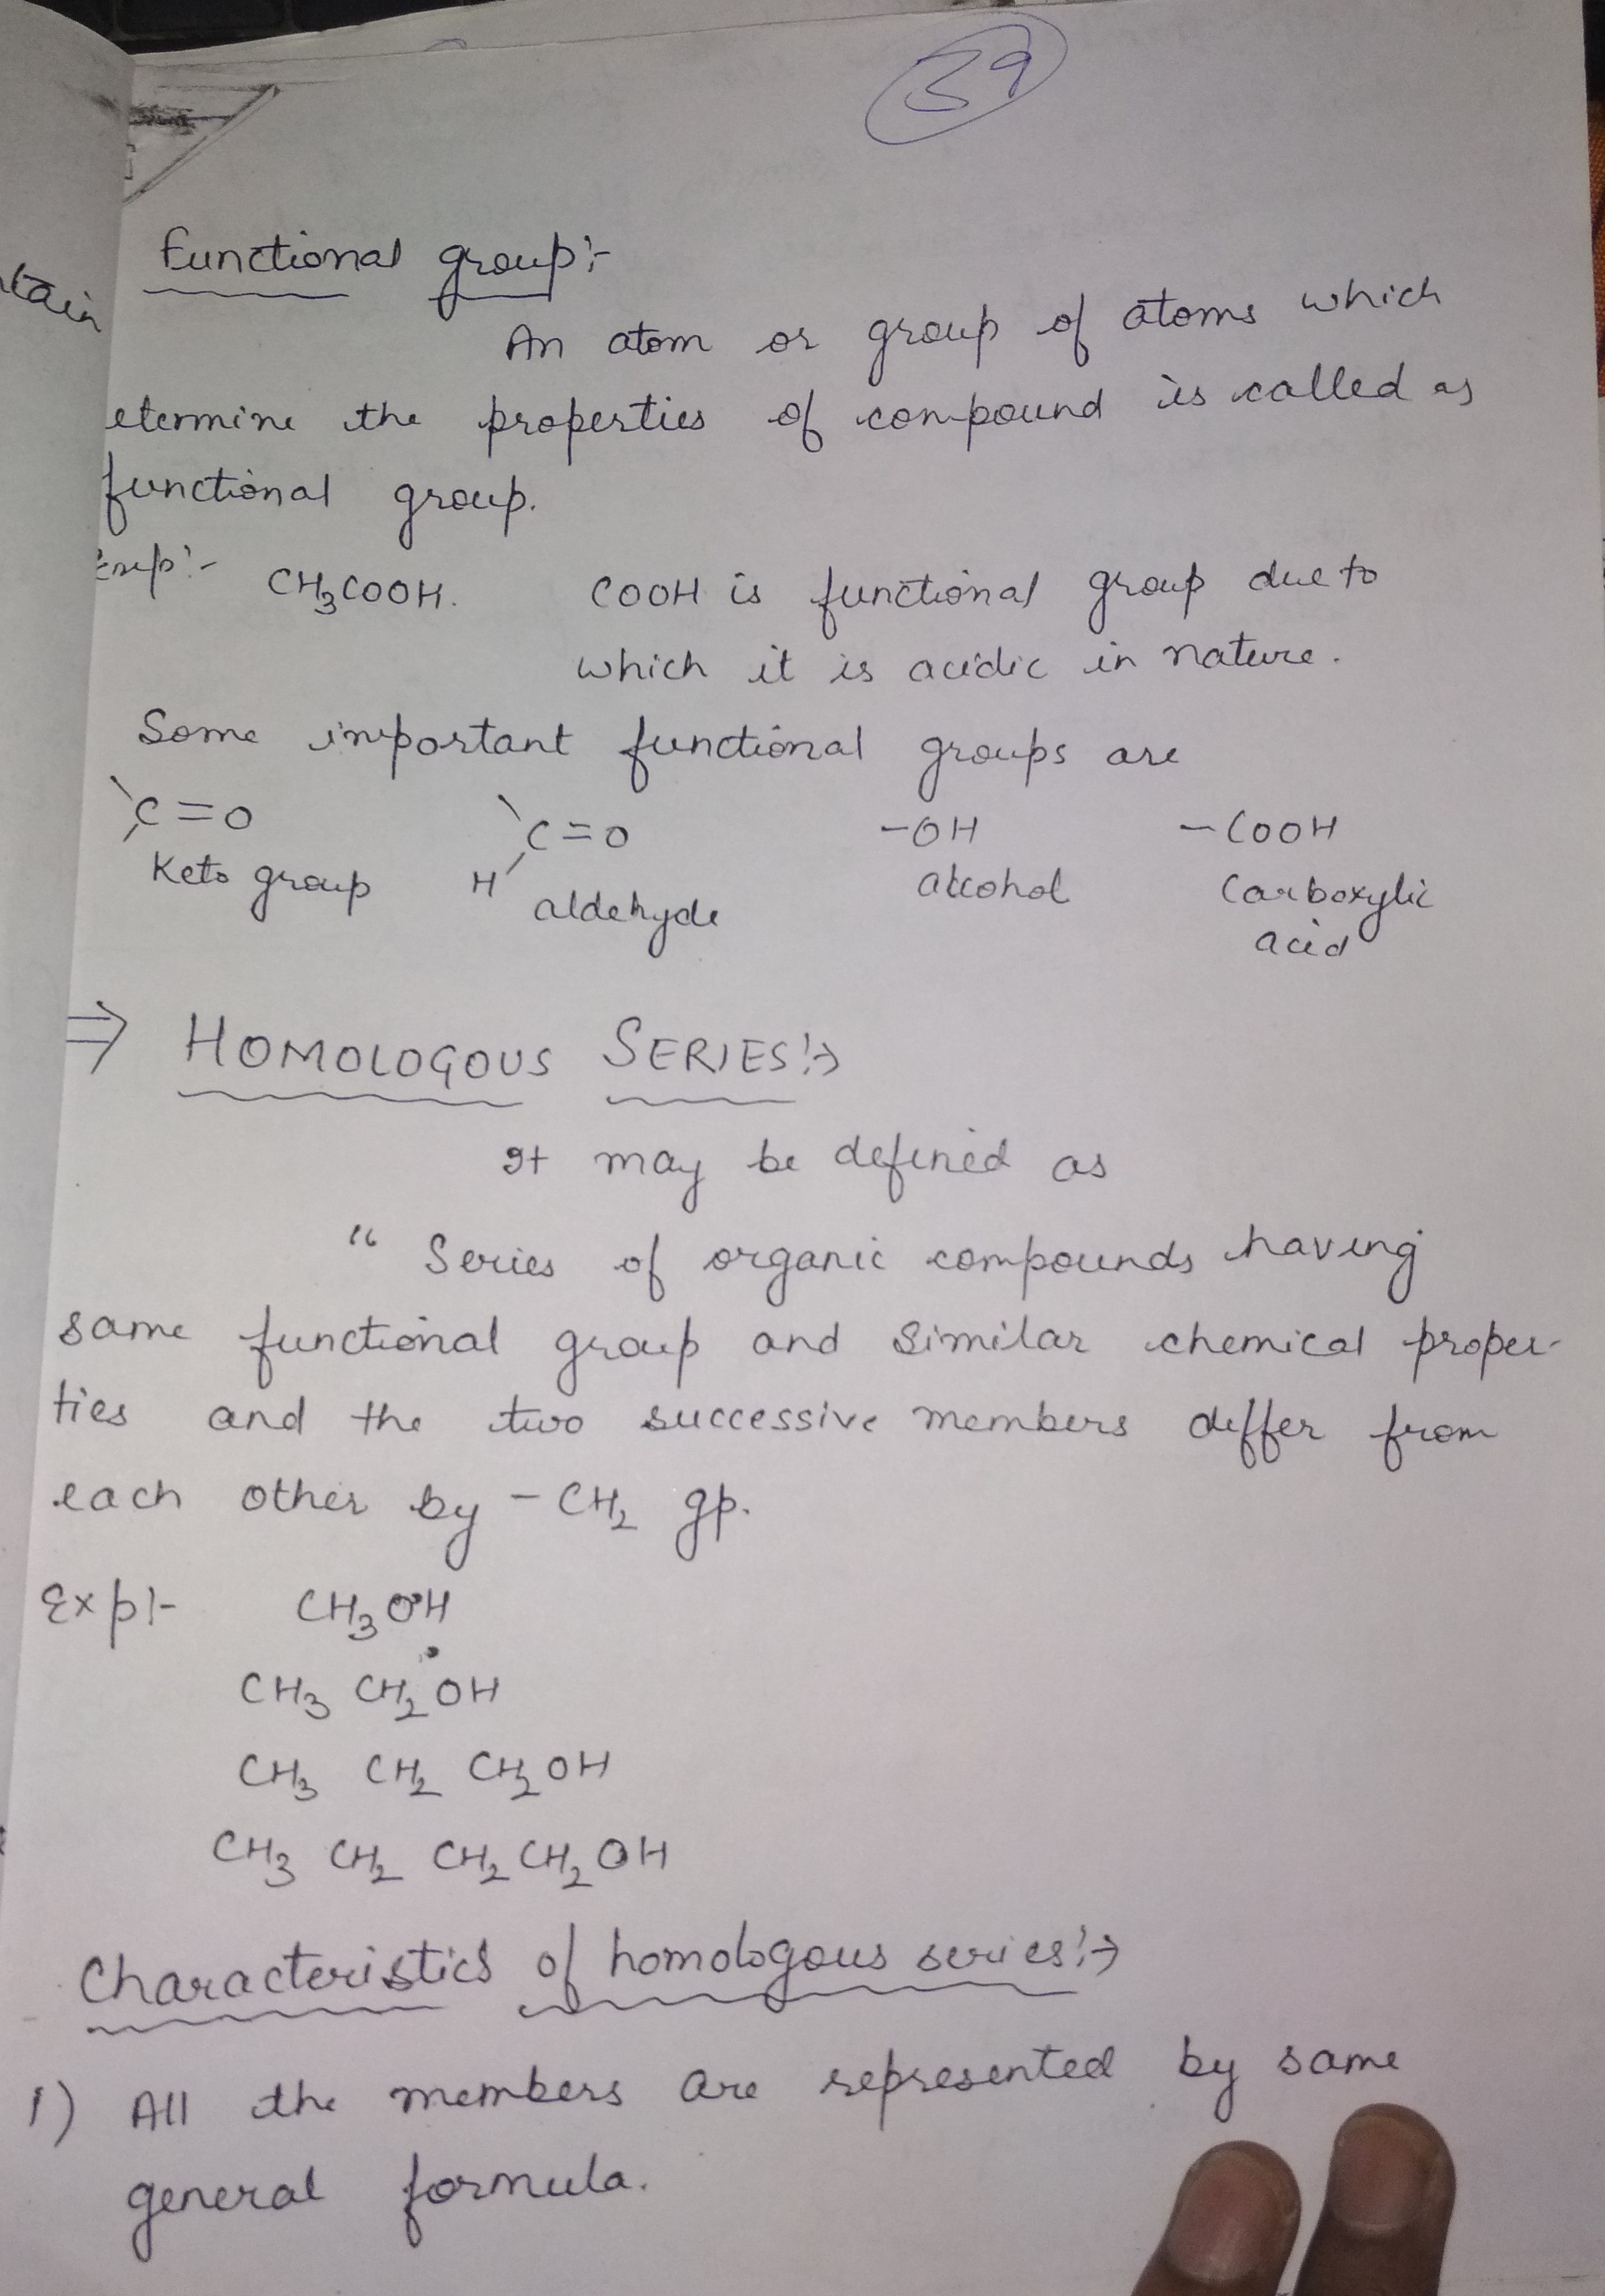 39
tain
Functional group:-
An atom or group of atoms which
etermine the properties of compound is called as
functional group.
Exp:- CH₃COOH. COOH is functional group due to
which it is acidic in nature.
Some important functional groups are
C=O C=O -OH -COOH
Keto group H aldehyde alcohol Carboxylic
acid
⇒ HOMOLOGOUS SERIES:→
It may be defined as
" Series of organic compounds having
same functional group and similar chemical proper-
ties and the two successive members differ from
each other by -CH₂ gp.
Exp:- CH₃OH
CH₃ CH₂OH
CH₃ CH₂ CH₂OH
CH₃ CH₂ CH₂ CH₂ OH
Characteristics of homologous series:→
1) All the members are represented by same
general formula.